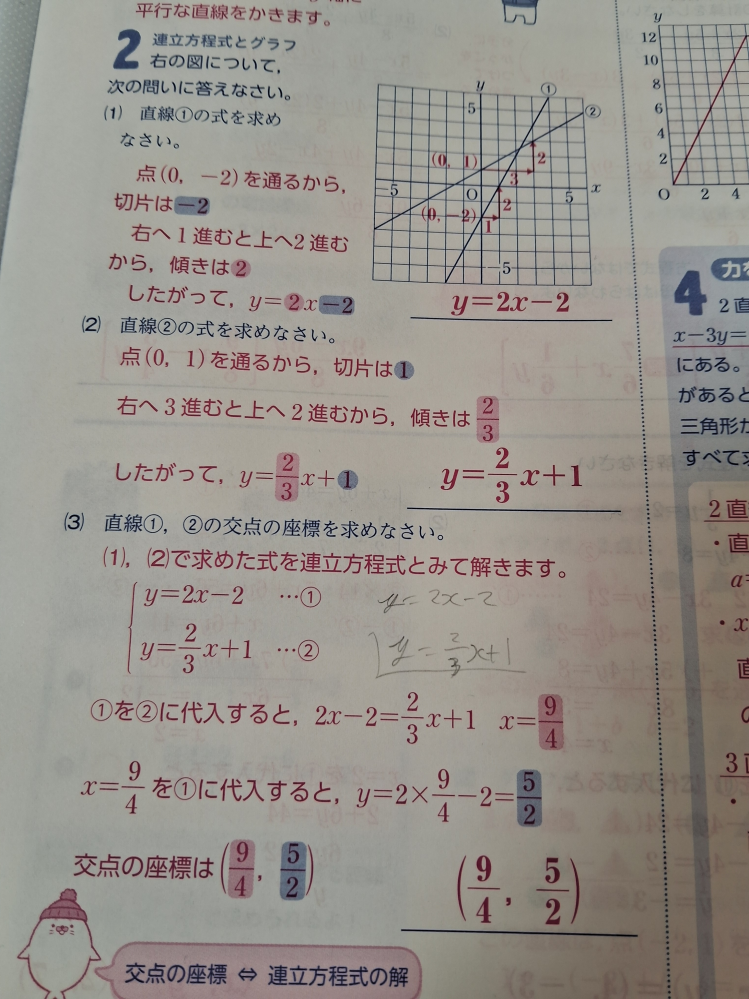 平行な直線をかきます。
2 連立方程式とグラフ
右の図について，
次の問いに答えなさい。
(1) 直線①の式を求め
なさい。
点(0, −2)を通るから，
切片は−2
右へ1進むと上へ2進む
から，傾きは2
したがって，y=2x−2
y=2x−2
y
①
②
5
(0, 1)
2
3
5
O
5
x
(0, −2)
2
1
5
(2) 直線②の式を求めなさい。
点(0, 1)を通るから，切片は1
右へ3進むと上へ2進むから，傾きは2/3
したがって，y=2/3x+1
y=2/3x+1
(3) 直線①，②の交点の座標を求めなさい。
(1), (2)で求めた式を連立方程式とみて解きます。
y=2x−2 …①
y=2/3x+1 …②
y=2x−2
y=2/3x+1
①を②に代入すると，2x−2=2/3x+1 x=9/4
x=9/4を①に代入すると，y=2×9/4−2=5/2
交点の座標は(9/4, 5/2)
(9/4, 5/2)
交点の座標 ⇔ 連立方程式の解
y
12
10
8
6
4
2
O
2
4
4
2直
x−3y=
にある。
があると
三角形が
すべて求
2直
・直
a=
・x
直
の
3直